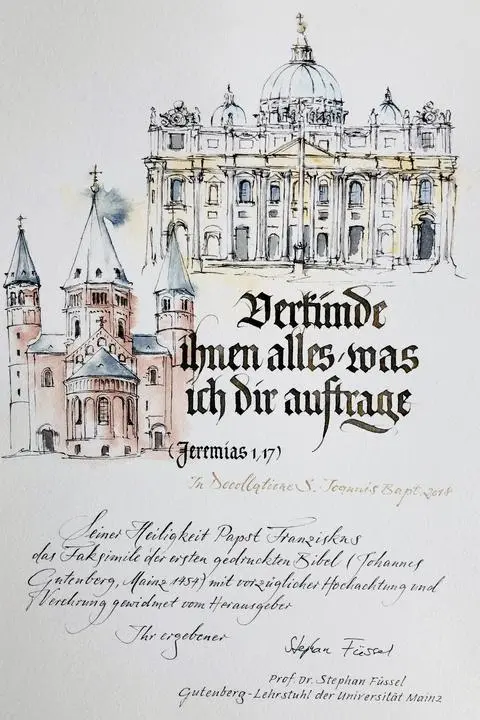 Verkünde
ihnen alles, was
ich dir auftrage
(Jeremias 1,17)
In Decollatione S. Joannis Bapt. 2018
Seiner Heiligkeit Papst Franziskus
das Faksimile der ersten gedruckten Bibel (Johannes
Gutenberg, Mainz 1454) mit vorzüglicher Hochachtung und
Verehrung gewidmet vom Herausgeber
Ihr ergebener
Stephan Füssel
Prof. Dr. Stephan Füssel
Gutenberg-Lehrstuhl der Universität Mainz